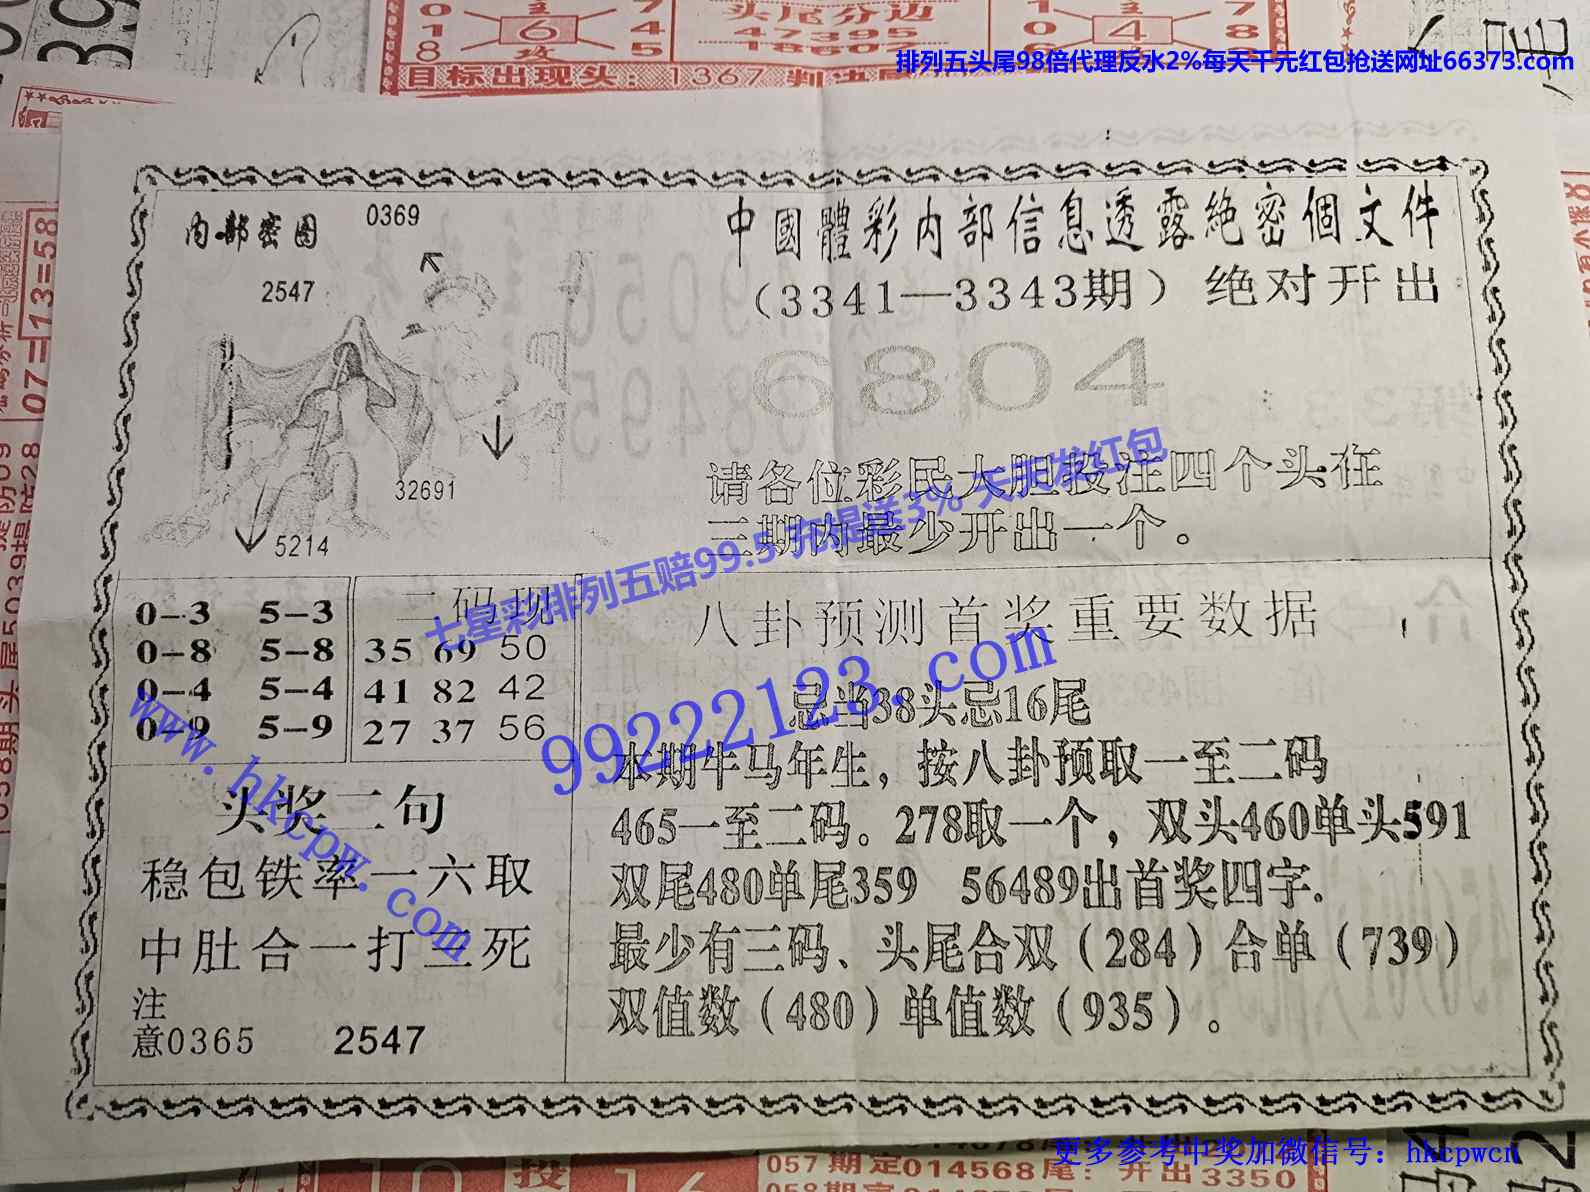 0 8 主 7 8
1 6 4 4
8 攻 5
头尾分边
47395
18602
1 主 7
0 4 8
6 攻 8
目标出现头:1367
排列五头尾98倍代理反水2%每天千元红包抢送网址66373.com
内部密图
0369
2547
32691
5214
中國體彩内部信息透露絶密個文件
(3341—3343期)绝对开出
6804
请各位彩民大胆投注四个头在
三期内最少开出一个。
七星彩排列五赔99.5 充提送3% 天天发红包
0-3 5-3
0-8 5-8
0-4 5-4
0-9 5-9
二码现
35 69 50
41 82 42
27 37 56
八卦预测首奖重要数据
忌当38头忌16尾
本期牛马年生,按八卦预取一至二码
465一至二码。278取一个,双头460单头591
双尾480单尾359 56489出首奖四字.
最少有三码、头尾合双(284)合单(739)
双值数(480)单值数(935)。
99222123.com
www.hkcpw.com
头奖二句
稳包铁率一六取
中肚合一打三死
注
意0365 2547
07=13=58
057期定014568尾:开出3350
更多参考中奖加微信号:hkcpwcn